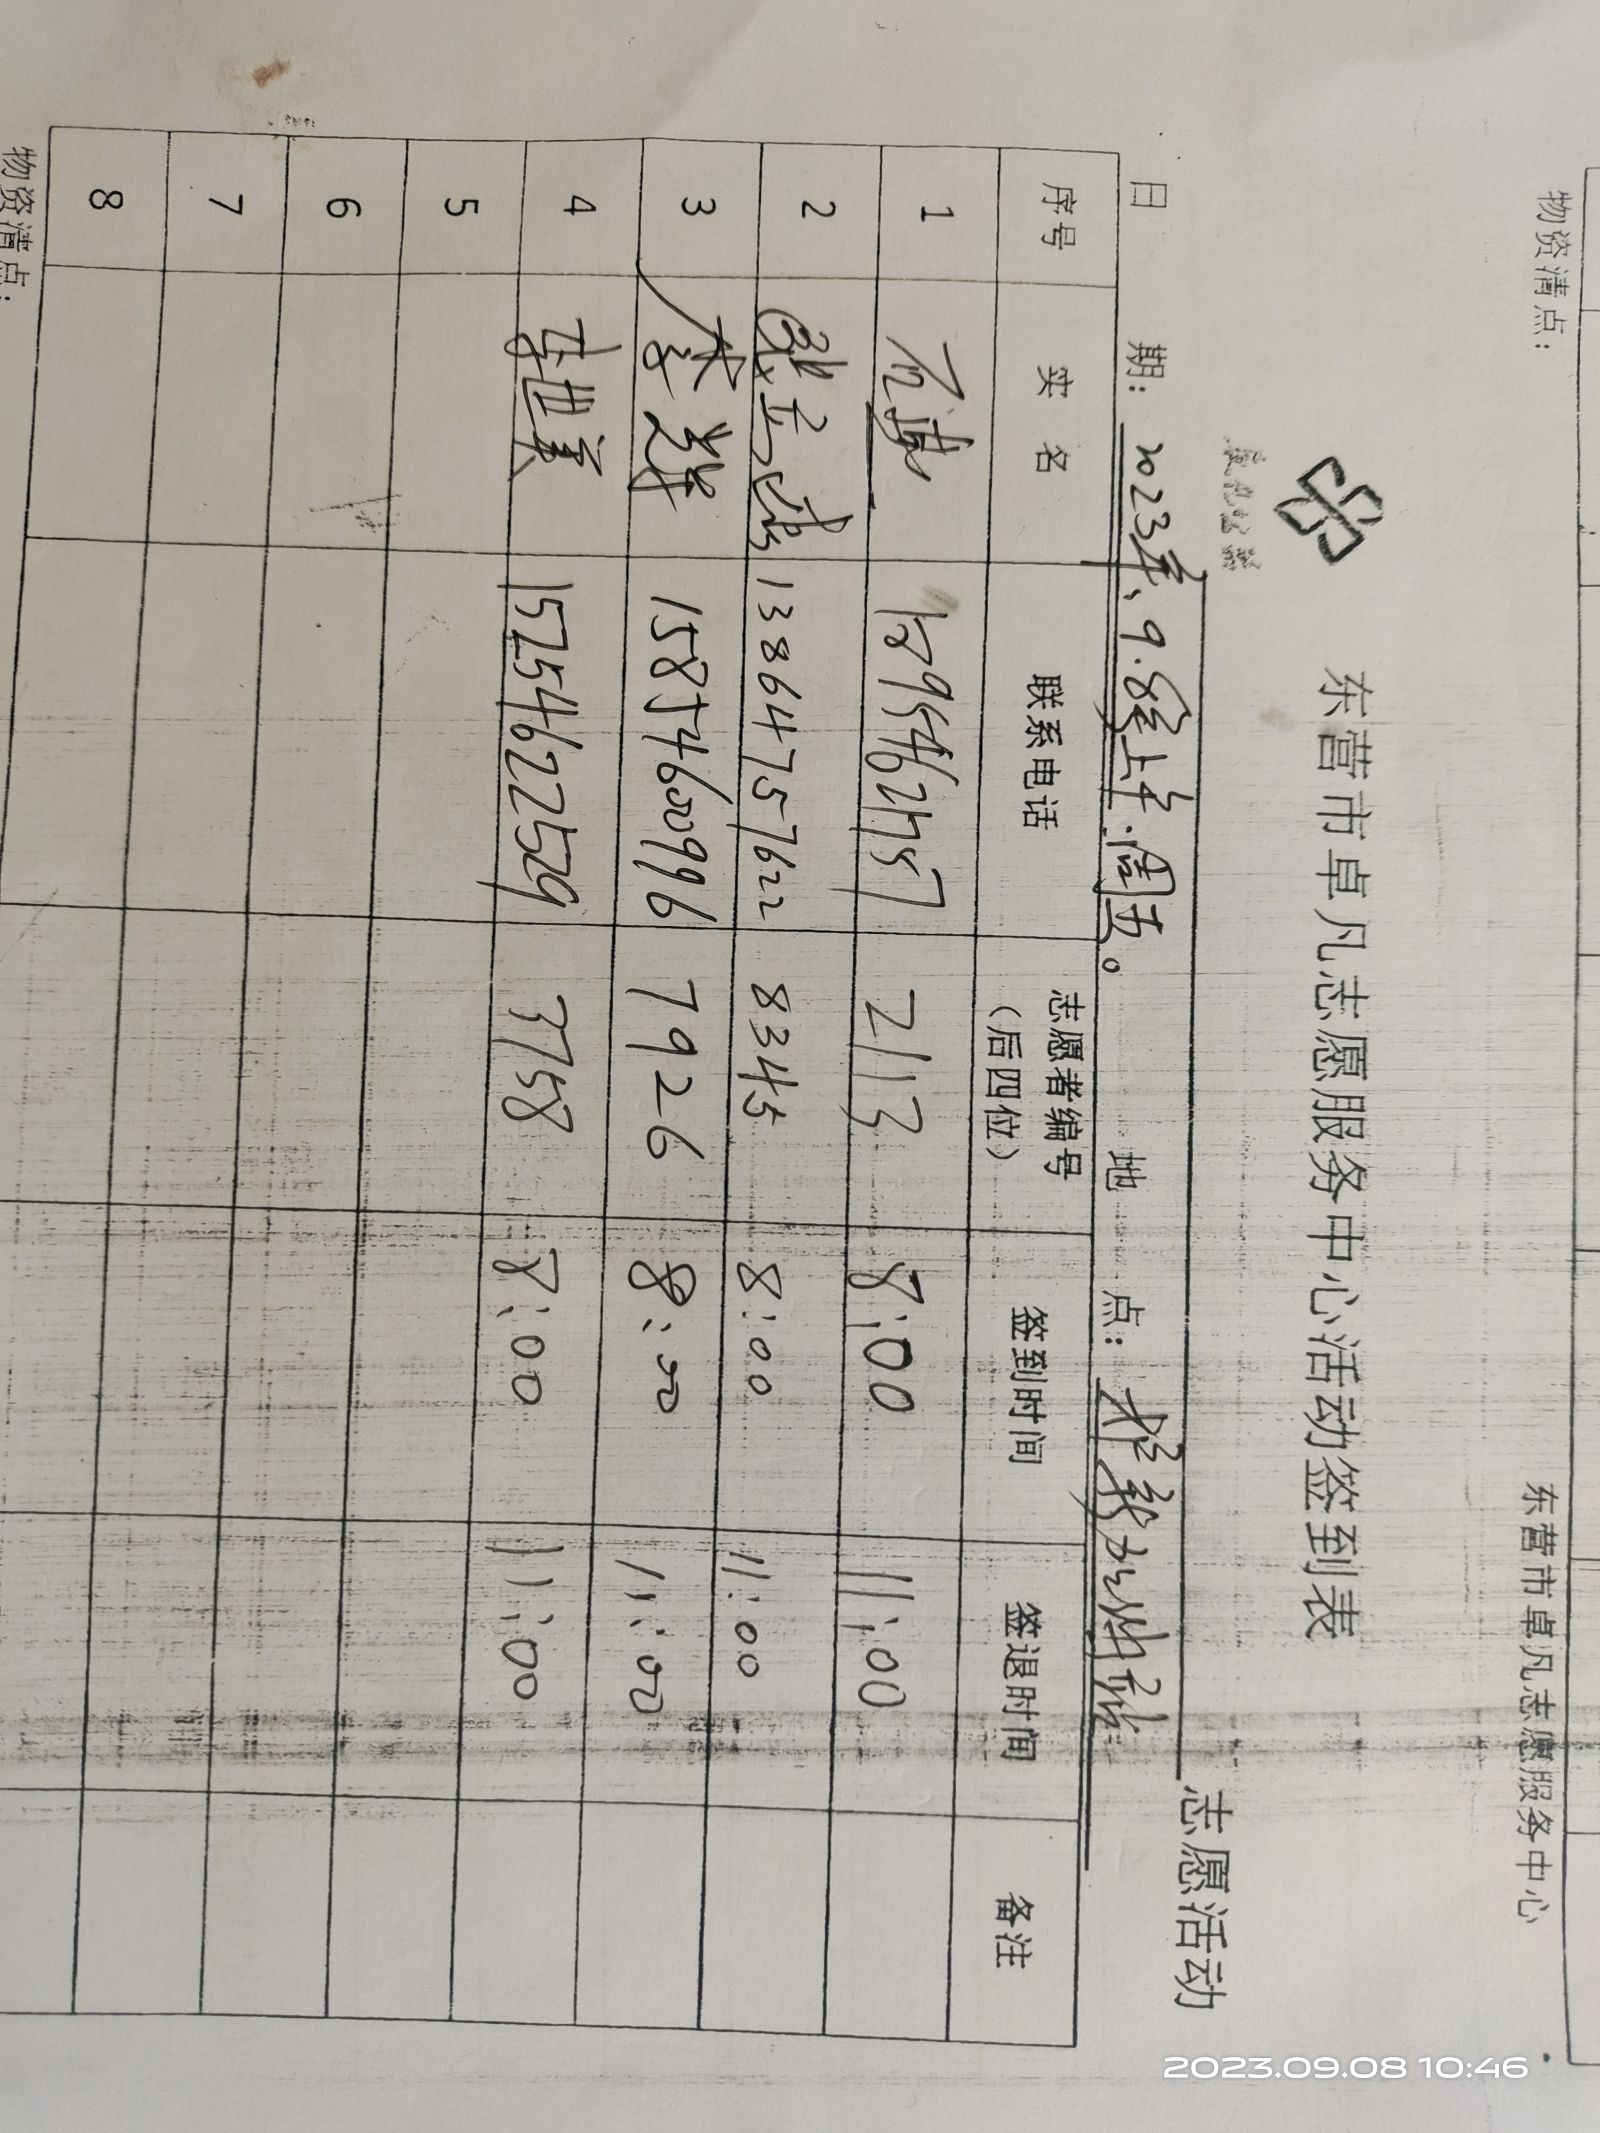 物资清点：
东营市卓凡志愿服务中心
东营市卓凡志愿服务中心活动签到表
志愿活动
日 期： 2023年、9.8 上午.周五。 地 点：
序号 实 名 联系电话 志愿者编号（后四位） 签到时间 签退时间 备注
1 2113 8:00 11:00
2 13864757622 8345 8:00 11:00
3 15854600996 7926 8:00 11:00
4 15254622509 3758 8:00 11:00
5
6
7
8
物资清点：
2023.09.08 10:46